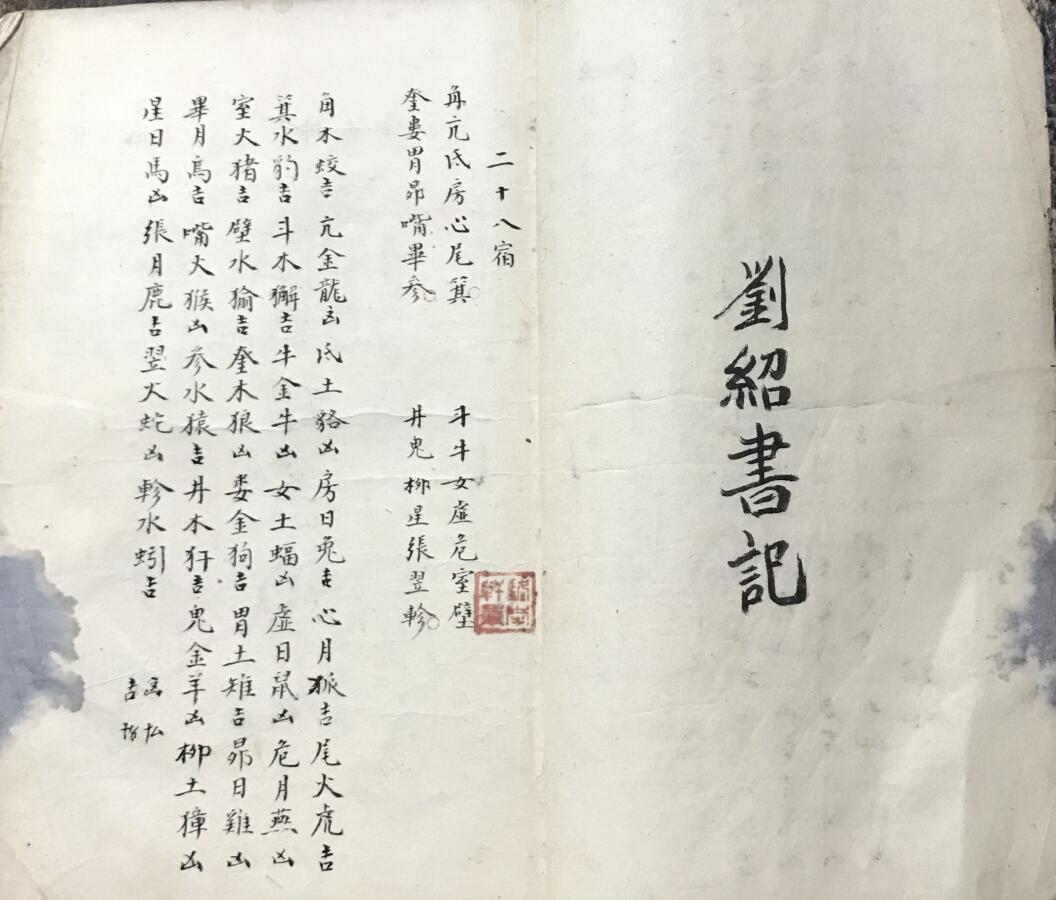 劉紹書記
二十八宿
角亢氐房心尾箕 斗牛女虛危室壁
奎婁胃昴嘴畢參 井鬼柳星張翌軫
角木蛟吉亢金龍凶氐土貉凶房日兔吉心月狐吉尾火虎吉
箕水豹吉斗木獬吉牛金牛凶女土蝠凶虛日鼠凶危月燕凶
室火猪吉壁水㺄吉奎木狼凶婁金狗吉胃土雉吉昴日雞凶
畢月烏吉嘴火猴凶參水猿吉井木犴吉鬼金羊凶柳土獐凶
星日馬凶張月鹿吉翌火蛇凶軫水蚓吉
凶
吉